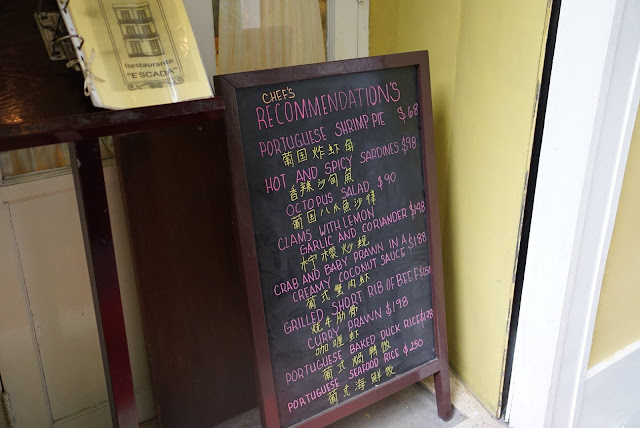 Restaurante
"ESCADA"
CHEF'S
RECOMMENDATION'S
PORTUGUESE SHRIMP PIE $68
葡国炸虾角
HOT AND SPICY SARDINES $98
香辣沙甸鱼
OCTOPUS SALAD $90
葡国八爪鱼沙律
CLAMS WITH LEMON
GARLIC AND CORIANDER $148
柠檬炒蚬
CRAB AND BABY PRAWN IN A
CREAMY COCONUT SAUCE $188
葡式蟹肉虾
GRILLED SHORT RIB OF BEEF $150
烧牛肋骨
CURRY PRAWN $198
咖喱虾
PORTUGUESE BAKED DUCK RICE $178
葡式焗鸭饭
PORTUGUESE SEAFOOD RICE $250
葡式海鲜饭